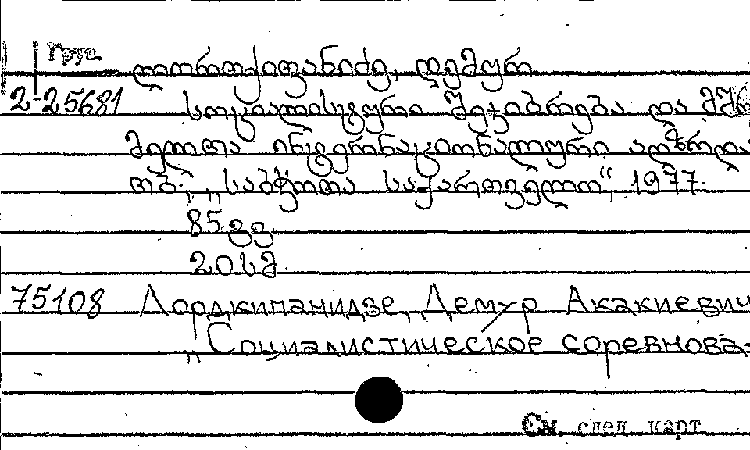 Груз.
ლორთქიფანიძე, დემურ
2-25681 სოციალისტური შეჯიბრება და მშ
მელთა ინტერნაციონალური აღზრდა
თბ., „საბჭოთა საქართველო“, 1977.
85 გვ.
20 სმ
75108 Лорджипанидзе, Демур Акакиевич
„Социалистическое соревнова-
См. след. карт.